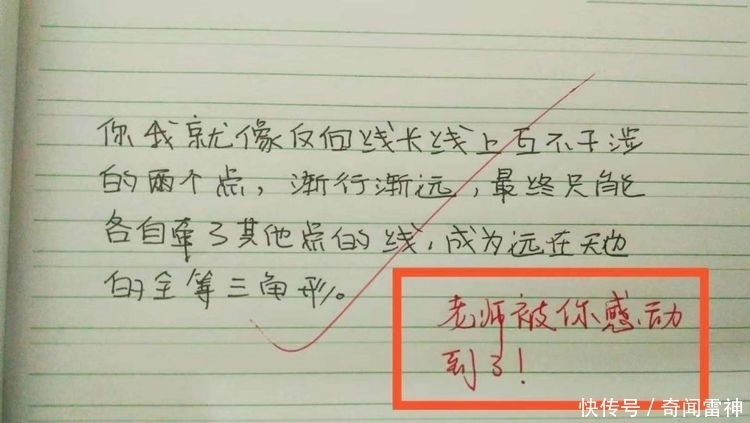 你我就像反向线长线上互不干涉
的两个点，渐行渐远，最终只能
各自牵了其他点的线，成为远在天边
的全等三角形。
老师被你感动
到了！
快传号／奇闻雷神